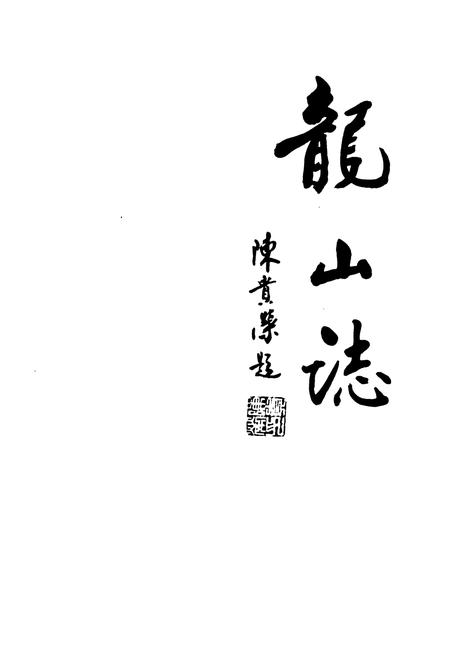 龍山誌
陳貴榮題